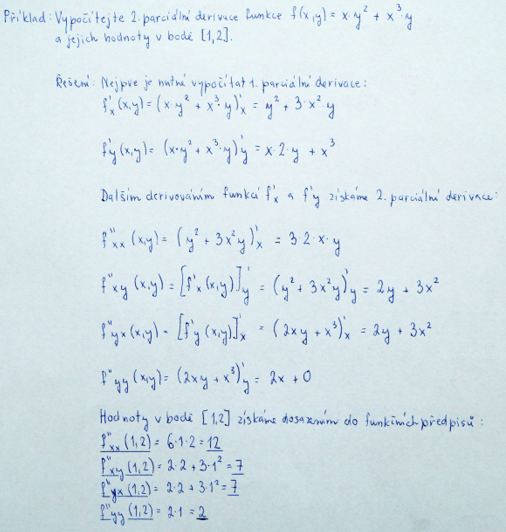 Příklad: Vypočítejte 2. parciální derivace funkce f(x,y) = x·y² + x³·y
a jejich hodnoty v bodě [1,2].
Řešení: Nejprve je nutné vypočítat 1. parciální derivace:
f'x (x,y) = (x·y² + x³·y)'x = y² + 3·x²·y
f'y (x,y) = (x·y² + x³·y)'y = x·2·y + x³
Dalším derivováním funkcí f'x a f'y získáme 2. parciální derivace:
f''xx (x,y) = (y² + 3x²y)'x = 3·2·x·y
f''xy (x,y) = [f'x (x,y)]'y = (y² + 3x²y)'y = 2y + 3x²
f''yx (x,y) = [f'y (x,y)]'x = (2xy + x³)'x = 2y + 3x²
f''yy (x,y) = (2xy + x³)'y = 2x + 0
Hodnoty v bodě [1,2] získáme dosazením do funkčních předpisů:
f''xx (1,2) = 6·1·2 = 12
f''xy (1,2) = 2·2 + 3·1² = 7
f''yx (1,2) = 2·2 + 3·1² = 7
f''yy (1,2) = 2·1 = 2